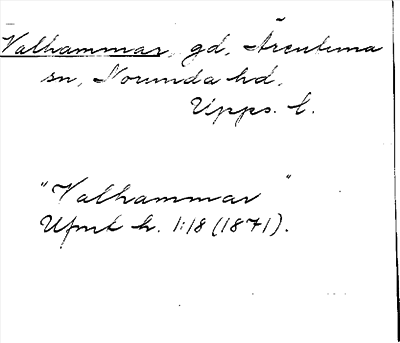 Valhammar, gd, Ärentuna
sn, Norunda hd,
Upps. l.
"Valhammar"
Ufmt h. 1:18 (1871).